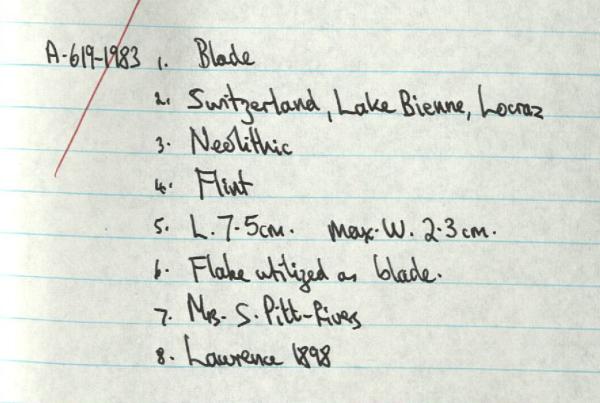 A·619-1983 1. Blade
2. Switzerland, Lake Bienne, Locraz
3. Neolithic
4. Flint
5. L. 7·5cm. Max. W. 2·3cm.
6. Flake utilized as blade.
7. Mrs. S. Pitt-Rivers
8. Lawrence 1898